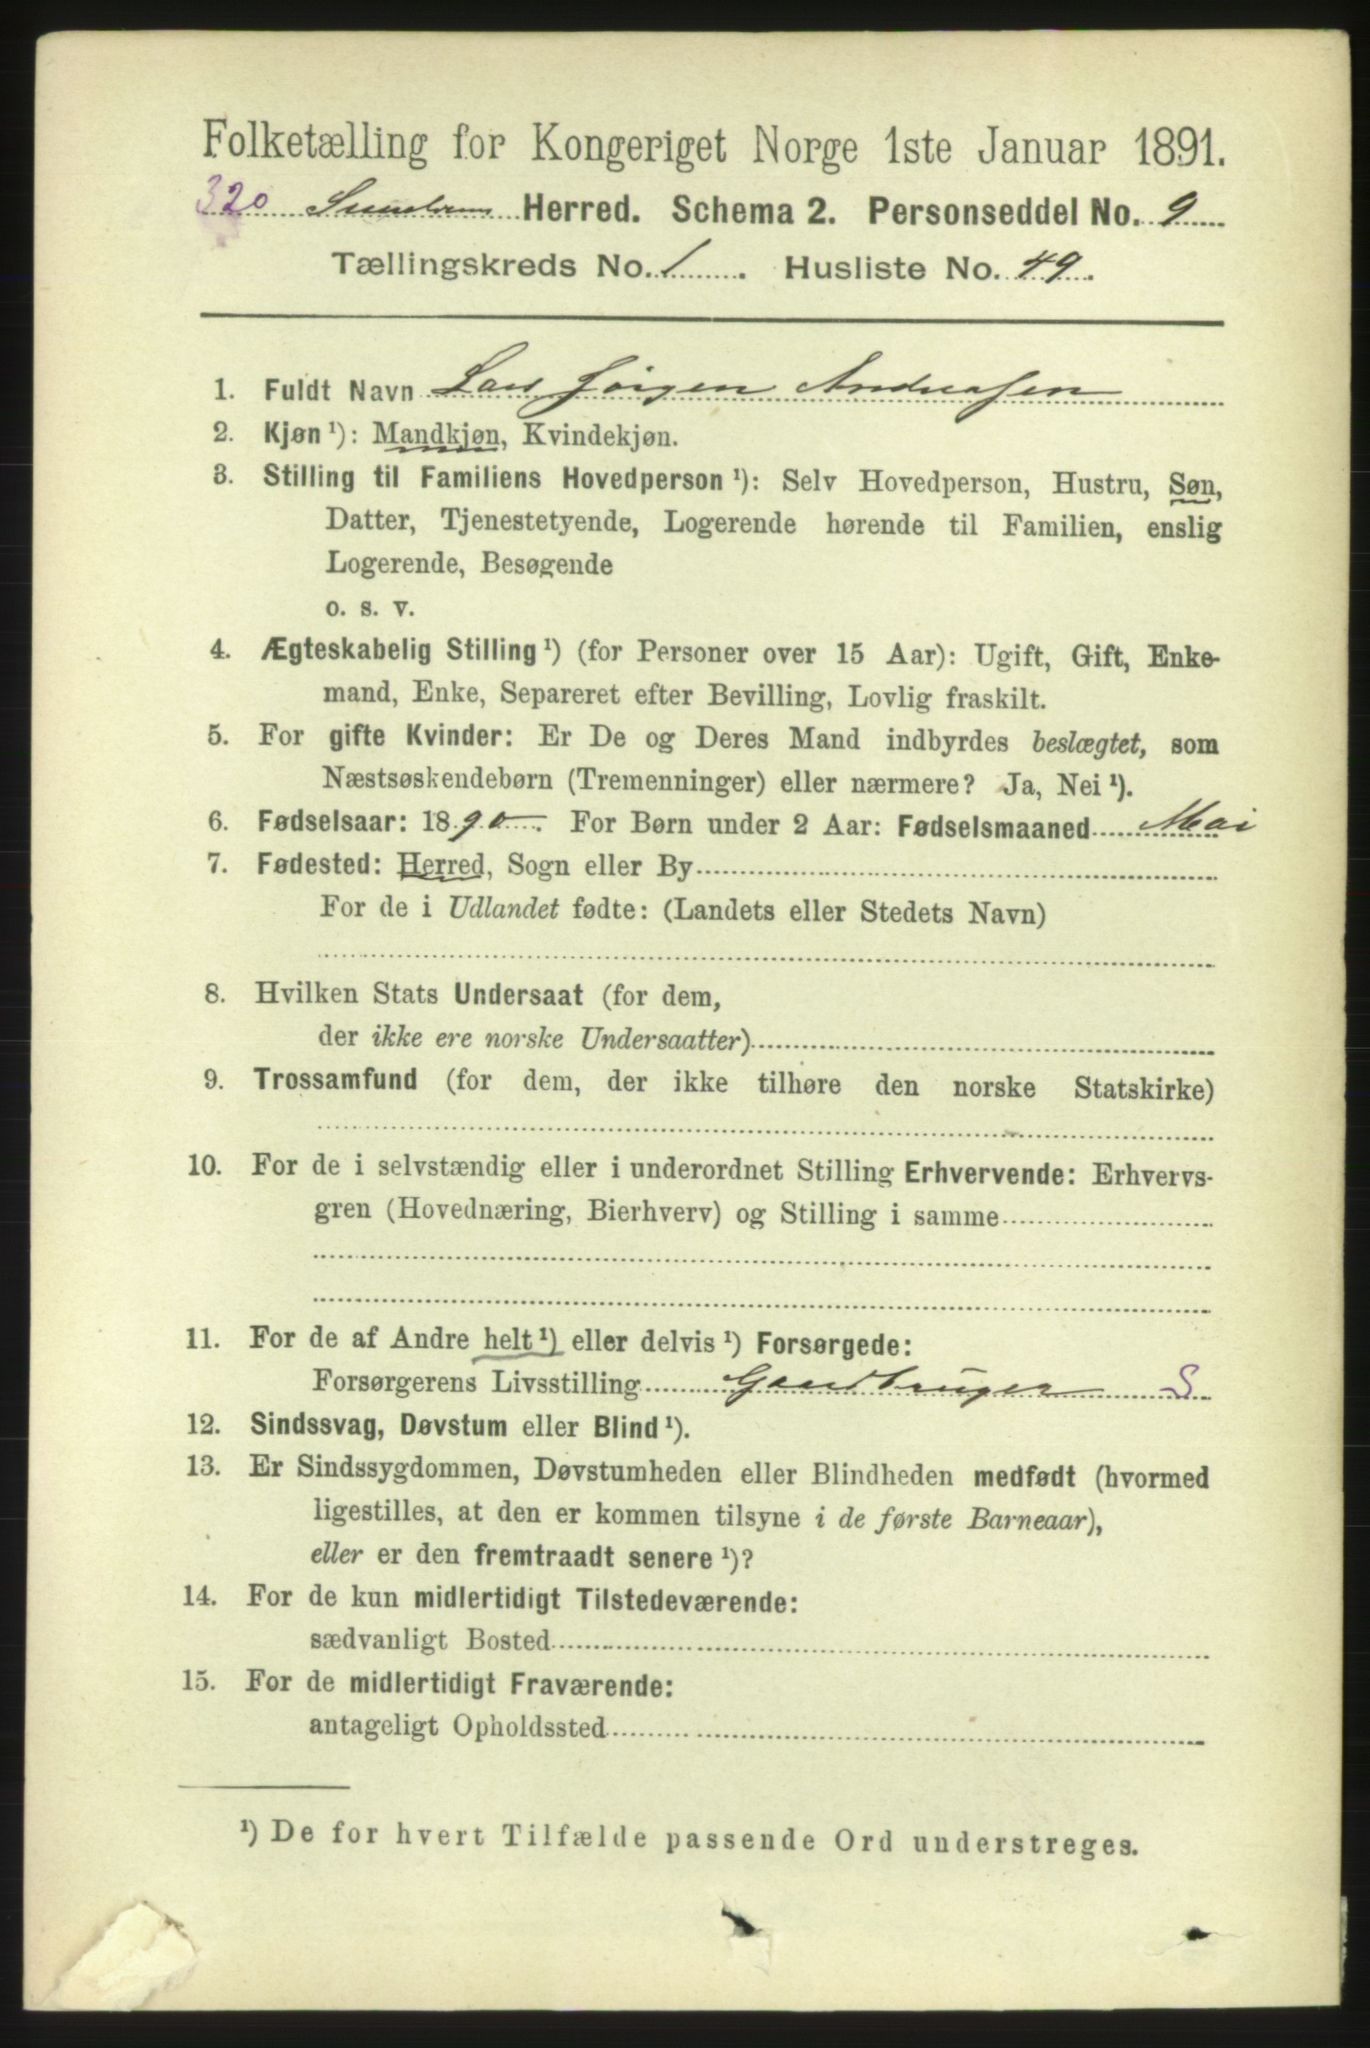 Folketælling for Kongeriget Norge 1ste Januar 1891.
320 Herred. Schema 2. Personseddel No. 9
Tællingskreds No. 1. Husliste No. 49.
1. Fuldt Navn Lars Jörgen Andreasen
2. Kjøn ¹): Mandkjøn, Kvindekjøn.
3. Stilling til Familiens Hovedperson ¹): Selv Hovedperson, Hustru, Søn,
Datter, Tjenestetyende, Logerende hørende til Familien, enslig
Logerende, Besøgende
o. s. v.
4. Ægteskabelig Stilling ¹) (for Personer over 15 Aar): Ugift, Gift, Enke-
mand, Enke, Separeret efter Bevilling, Lovlig fraskilt.
5. For gifte Kvinder: Er De og Deres Mand indbyrdes beslægtet, som
Næstsøskendebørn (Tremenninger) eller nærmere? Ja, Nei ¹).
6. Fødselsaar: 1890. For Børn under 2 Aar: Fødselsmaaned Mai
7. Fødested: Herred, Sogn eller By
For de i Udlandet fødte: (Landets eller Stedets Navn)
8. Hvilken Stats Undersaat (for dem,
der ikke ere norske Undersaatter)
9. Trossamfund (for dem, der ikke tilhøre den norske Statskirke)
10. For de i selvstændig eller i underordnet Stilling Erhvervende: Erhvervs-
gren (Hovednæring, Bierhverv) og Stilling i samme
11. For de af Andre helt ¹) eller delvis ¹) Forsørgede:
Forsørgerens Livsstilling Gaardbruger S
12. Sindssvag, Døvstum eller Blind ¹).
13. Er Sindssygdommen, Døvstumheden eller Blindheden medfødt (hvormed
ligestilles, at den er kommen tilsyne i de første Barneaar),
eller er den fremtraadt senere ¹)?
14. For de kun midlertidigt Tilstedeværende:
sædvanligt Bosted
15. For de midlertidigt Fraværende:
antageligt Opholdssted
¹) De for hvert Tilfælde passende Ord understreges.